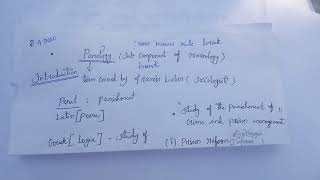 "some means rule break
Penology (Sub component of criminology)
branch
Introduction
term coined by francis Lieber (Sociologist)
Penal : punishment
Latin [Poena]
"Study of the punishment of
crime and prison management
Greek [Logia] - Study of
(i) Prison Reform